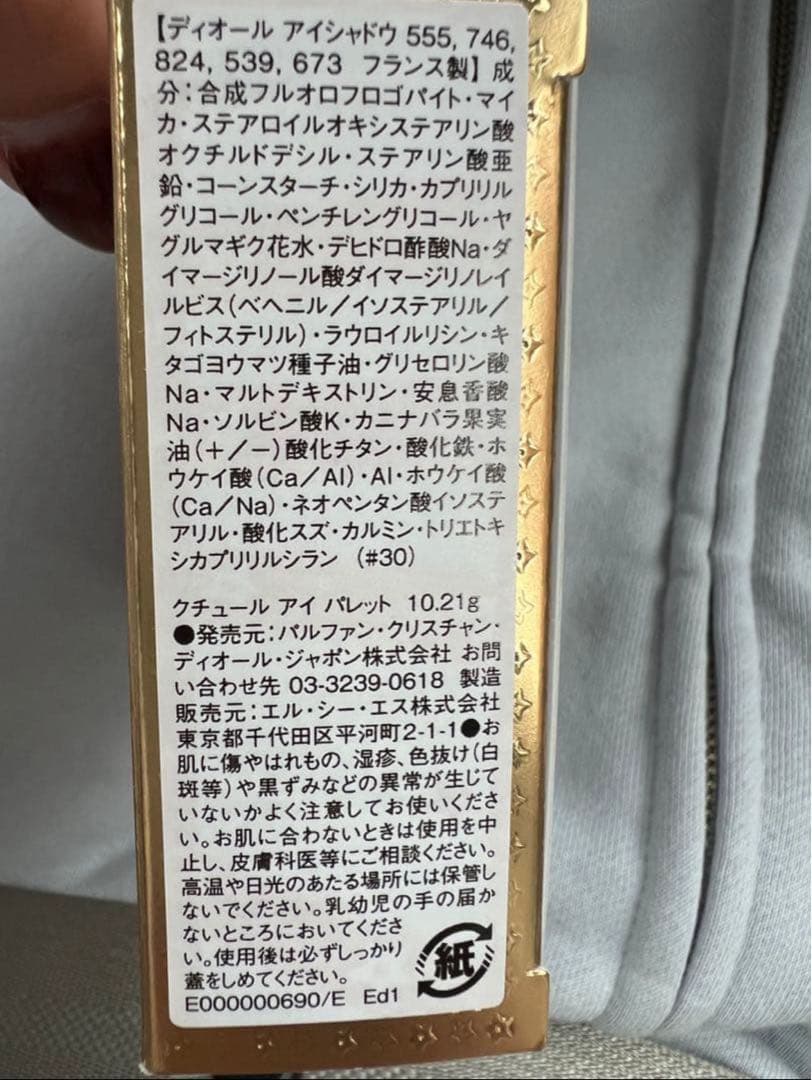 【ディオール アイシャドウ 555, 746,
824, 539, 673 フランス製】 成
分:合成フルオロフロゴパイト・マイ
カ・ステアロイルオキシステアリン酸
オクチルドデシル・ステアリン酸亜
鉛・コーンスターチ・シリカ・カプリリル
グリコール・ペンチレングリコール・ヤ
グルマギク花水・デヒドロ酢酸Na・ダ
イマージリノール酸ダイマージリノレイ
ルビス(ベヘニル/イソステアリル/
フィトステリル)・ラウロイルリシン・キ
タゴヨウマツ種子油・グリセロリン酸
Na・マルトデキストリン・安息香酸
Na・ソルビン酸K・カニナバラ果実
油(+/-)酸化チタン・酸化鉄・ホ
ウケイ酸(Ca/Al)・Al・ホウケイ酸
(Ca/Na)・ネオペンタン酸イソステ
アリル・酸化スズ・カルミン・トリエトキ
シカプリリルシラン (#30)
クチュール アイ パレット 10.21g
●発売元:パルファン・クリスチャン・
ディオール・ジャポン株式会社 お問
い合わせ先 03-3239-0618 製造
販売元:エル・シー・エス株式会社
東京都千代田区平河町2-1-1●お
肌に傷やはれもの、湿疹、色抜け(白
斑等)や黒ずみなどの異常が生じて
いないかよく注意してお使いくださ
い。お肌に合わないときは使用を中
止し、皮膚科医等にご相談ください。
高温や日光のあたる場所には保管し
ないでください。乳幼児の手の届か
ないところにおいてくださ
い。使用後は必ずしっかり
蓋をしめてください。
紙
E000000690/E Ed1